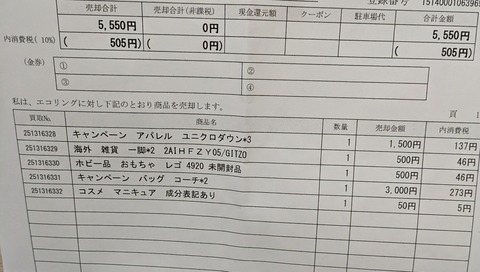 登録番号 T5140001063965
売却合計 売却合計(非課税) 現金還元額 クーポン 駐車場代 合計金額
5,550円 0円 5,550円
内消費税(10%) ( 505円) ( 0円) ( 505円)
(金券) ① ②
③ ④
私は、エコリングに対し下記のとおり商品を売却します。 頁 1
買取No. 商品名 数量 売却金額 内消費税
251316328 キャンペーン アパレル ユニクロダウン*3 1 1,500円 137円
251316329 海外 雑貨 一脚*2 2AIHFZY05/GITZO 1 500円 46円
251316330 ホビー品 おもちゃ レゴ 4920 未開封品 1 500円 46円
251316331 キャンペーン バッグ コーチ*2 1 3,000円 273円
251316332 コスメ マニキュア 成分表記あり 1 50円 5円